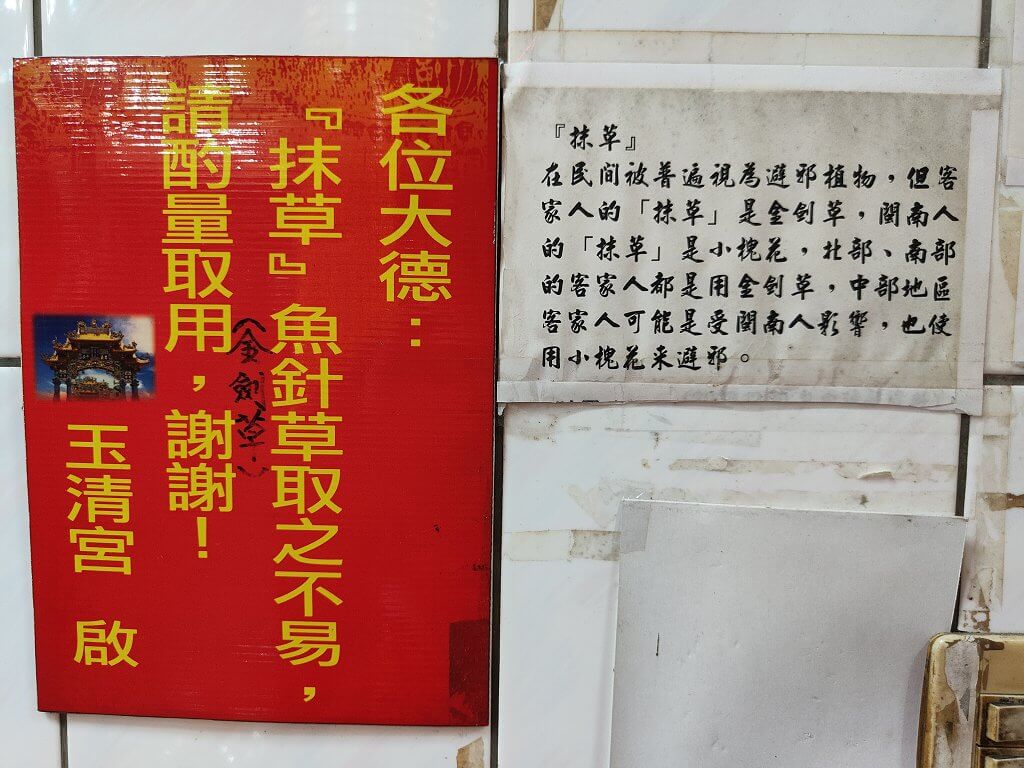 各位大德：
『抹草』魚針草取之不易，
（金劍草）
請酌量取用，謝謝！
玉清宮 啟
『抹草』
在民间被普遍視為避邪植物，但客
家人的「抹草」是金剑草，閩南人
的「抹草」是小槐花，北部、南部
的客家人都是用金剑草，中部地區
客家人可能是受閩南人影響，也使
用小槐花来避邪。